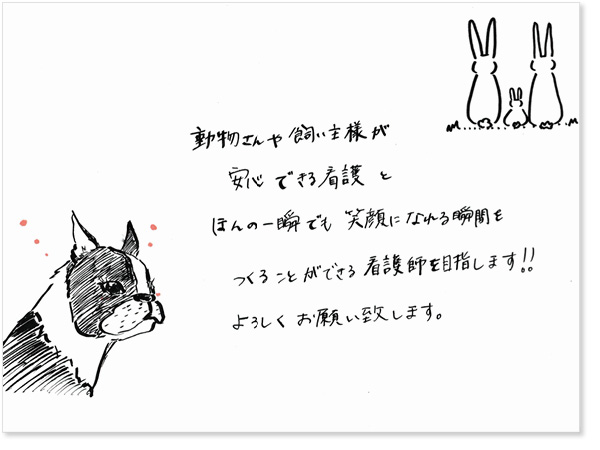 動物さんや飼い主様が
安心できる看護と
ほんの一瞬でも笑顔になれる瞬間を
つくることができる看護師を目指します!!
よろしくお願い致します。